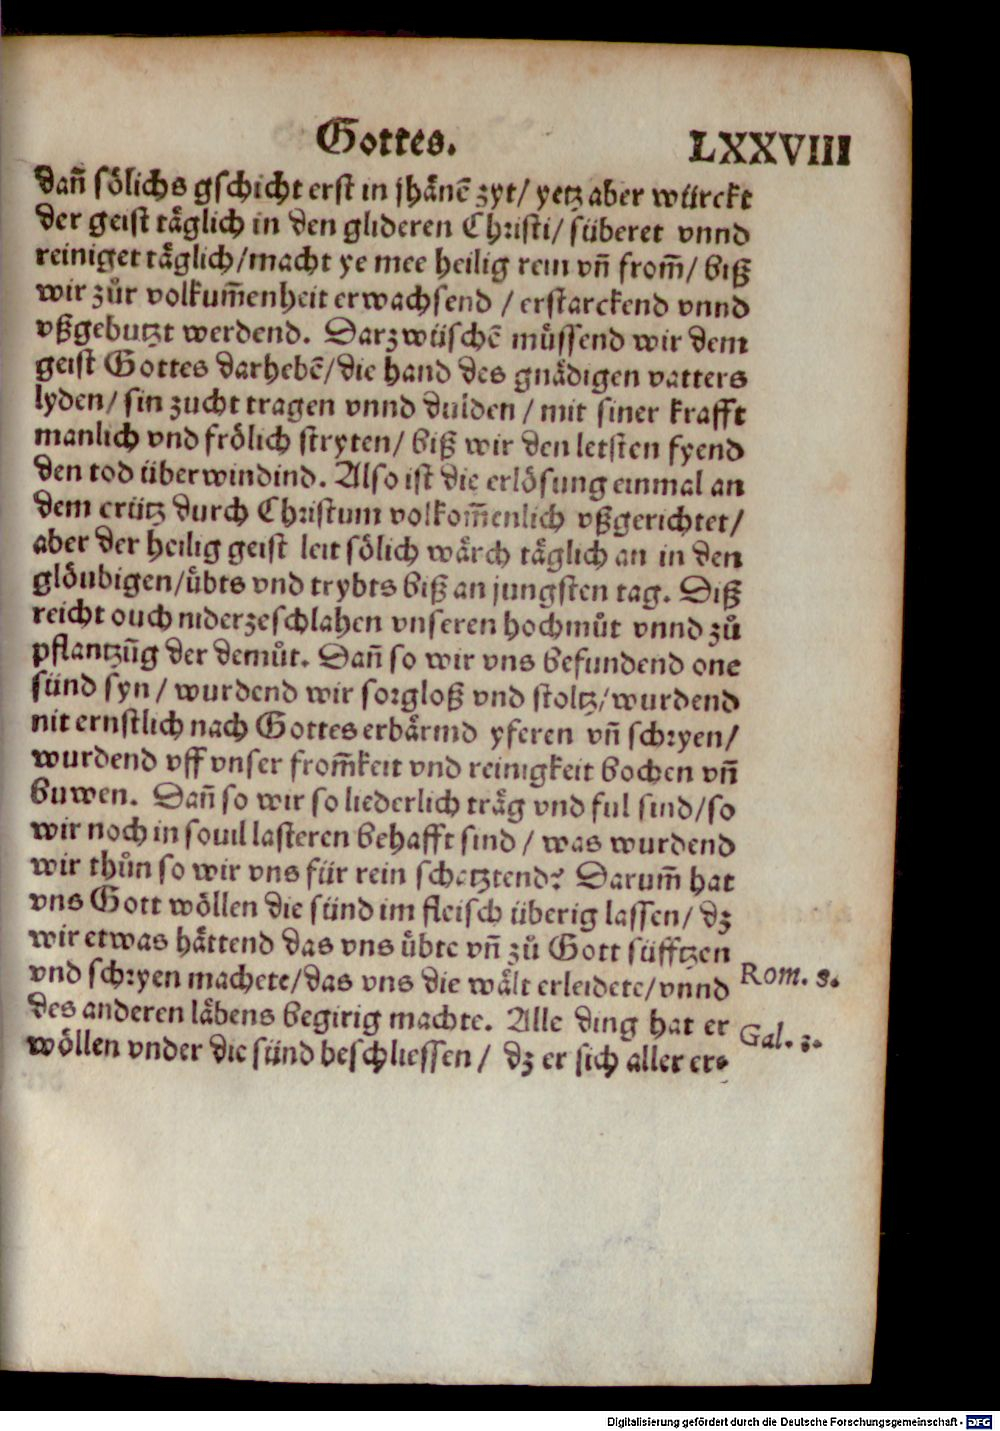 Gottes. LXXVIII
dañ sölichs gschicht erst in jhänē zyt/ yetz aber würckt
der geist täglich in den glideren Christi/ süberet vnnd
reiniget täglich/macht ye mee heilig rein vñ from̄/ biß
wir zůr volkum̄enheit erwachsend / erstarckend vnnd
vßgebutzt werdend. Darzwüschē můssend wir dem
geist Gottes darhebē/die hand des gnädigen vatters
lyden/ sin zucht tragen vnnd dulden / mit siner krafft
manlich vnd frölich stryten/ biß wir den letsten fyend
den tod überwindind. Also ist die erlösung einmal an
dem crütz durch Christum volkom̄enlich vßgerichtet/
aber der heilig geist leit sölich wärch täglich an in den
glöubigen/übts vnd trybts biß an jungsten tag. Diß
reicht ouch niderzeschlahen vnseren hochmůt vnnd zů
pflantzūg der demůt. Dañ so wir vns befundend one
sünd syn / wurdend wir sorgloß vnd stoltz/wurdend
nit ernstlich nach Gottes erbärmd yferen vñ schryen/
wurdend vff vnser from̄keit vnd reinigkeit bochen vñ
buwen. Dañ so wir so liederlich träg vnd ful sind/so
wir noch in souil lasteren behafft sind / was wurdend
wir thůn so wir vns für rein schetztend? Darum̄ hat
vns Gott wöllen die sünd im fleisch überig lassen/ dz
wir etwas hättend das vns übte vñ zů Gott süfftzen
vnd schryen machete/das vns die wält erleidete/vnnd Rom. 8.
des anderen läbens begirig machte. Alle ding hat er Gal. 3.
wöllen vnder die sünd beschliessen / dz er sich aller er⸗
Digitalisierung gefördert durch die Deutsche Forschungsgemeinschaft - DFG